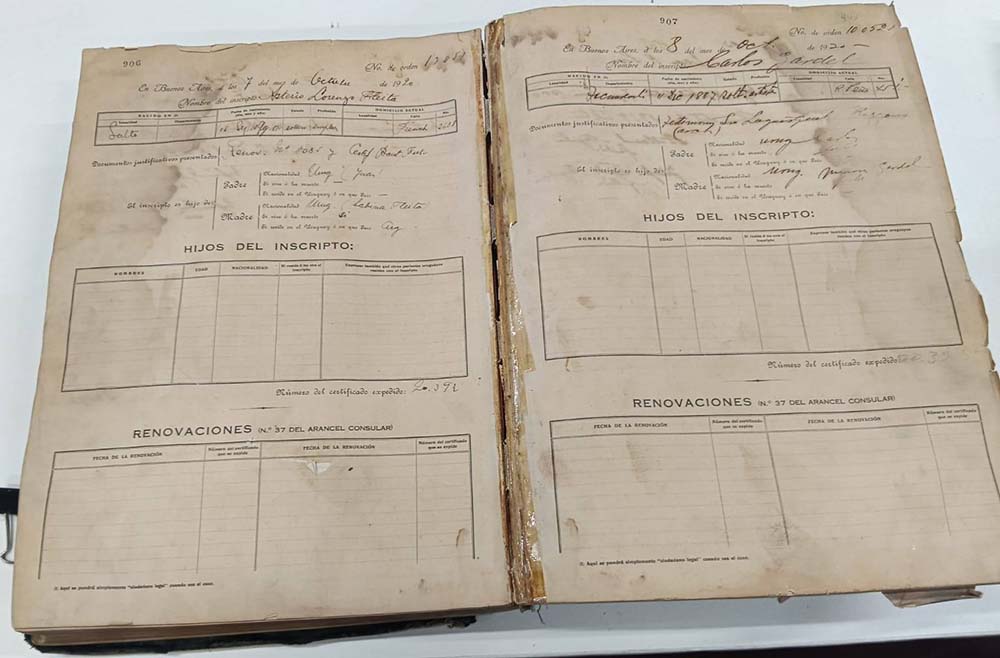 906
No. de orden
En Buenos Aires, á los 7 del mes de Octubre de 1920
Nombre del inscripto: Lorenzo Fleita
NACIDO EN:
Fecha de nacimiento
(día, mes y año)
Estado
Profesión
DOMICILIO ACTUAL
Localidad
Departamento
Localidad
Calle
Nro.
Salto
French
Documentos justificativos presentados
y
El inscripto es hijo de:
Padre
Nacionalidad Urug. Juan
Si vive ó ha muerto
Si reside en el Uruguay ó en que país
Madre
Nacionalidad Urug. Sabina Fleita
Si vive ó ha muerto Si
Si reside en el Uruguay ó en que país Arg
HIJOS DEL INSCRIPTO:
NOMBRES
EDAD
NACIONALIDAD
Si reside ó no con el
inscripto
Expresar también qué otros parientes uruguayos
residen con el inscripto
Número del certificado expedido: 20.391
RENOVACIONES (N.º 37 DEL ARANCEL CONSULAR)
FECHA DE LA RENOVACIÓN
Número del certificado
que se expide
FECHA DE LA RENOVACIÓN
Número del certificado
que se expide
(1) Aquí se pondrá simplemente "ciudadano legal" cuando sea el caso.
907
No. de orden 10.052
En Buenos Aires, á los 8 del mes de Oct. de 1920
Nombre del inscripto: Carlos Gardel
NACIDO EN:
Fecha de nacimiento
(día, mes y año)
Estado
Profesión
DOMICILIO ACTUAL
Localidad
Departamento
Localidad
Calle
Nro.
Tacuarembó 11 Dic 1887 R. Peña 451
Documentos justificativos presentados
El inscripto es hijo de:
Padre
Nacionalidad urug Carlos
Si vive ó ha muerto
Si reside en el Uruguay ó en que país
Madre
Nacionalidad urug. Gardel
Si vive ó ha muerto
Si reside en el Uruguay ó en que país
HIJOS DEL INSCRIPTO:
NOMBRES
EDAD
NACIONALIDAD
Si reside ó no con el
inscripto
Expresar también qué otros parientes uruguayos
residen con el inscripto
Número del certificado expedido:
RENOVACIONES (N.º 37 DEL ARANCEL CONSULAR)
FECHA DE LA RENOVACIÓN
Número del certificado
que se expide
FECHA DE LA RENOVACIÓN
Número del certificado
que se expide
(1) Aquí se pondrá simplemente "ciudadano legal" cuando sea el caso.